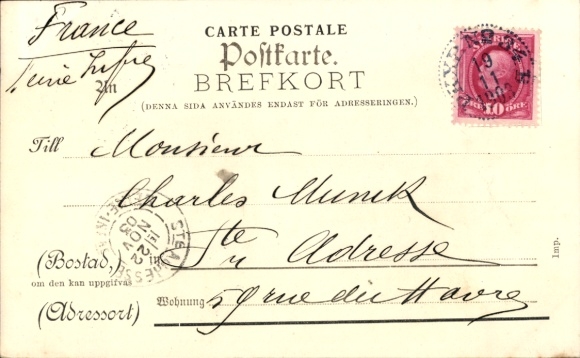 France
Seine Infre
CARTE POSTALE
Postkarte.
BREFKORT
(DENNA SIDA ANVÄNDES ENDAST FÖR ADRESSERINGEN.)
An
Till Monsieur
Charles Munck
Ste Adresse
(Bostad,)
om den kan uppgifvas
Wohnung 59 rue du Havre
(Adressort)
Imp.
10 ÖRE
19
11
1903
STE ADRESSE
22
NOV
03